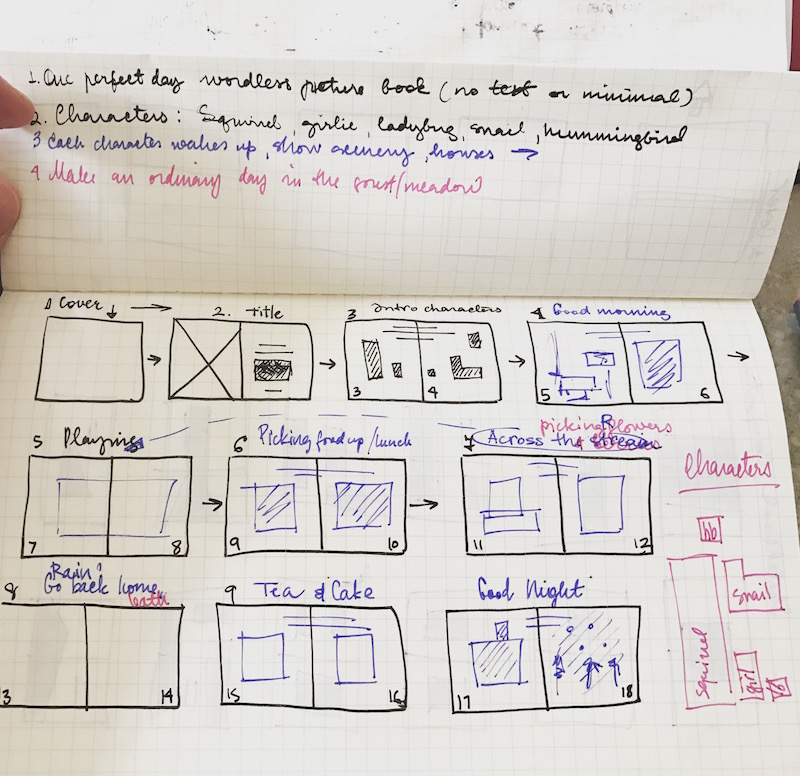 1. One perfect day wordless picture book (no text or minimal)
2. Characters: Squirrel, girlie, ladybug, snail, hummingbird
3 Each character wakes up, show scenery, houses →
4 Make an ordinary day in the forest/meadow
1 Cover
2. Title
3 Intro characters
4 Good morning
3
4
5
6
5 Playing
6 Picking food up/lunch
picking flowers
7 Across the stream
7
8
9
10
11
12
Characters
hb
snail
squirrel
girl
lb
8 Rain?
Go back home
bath
9 Tea & Cake
Good Night
3
14
15
16
17
18